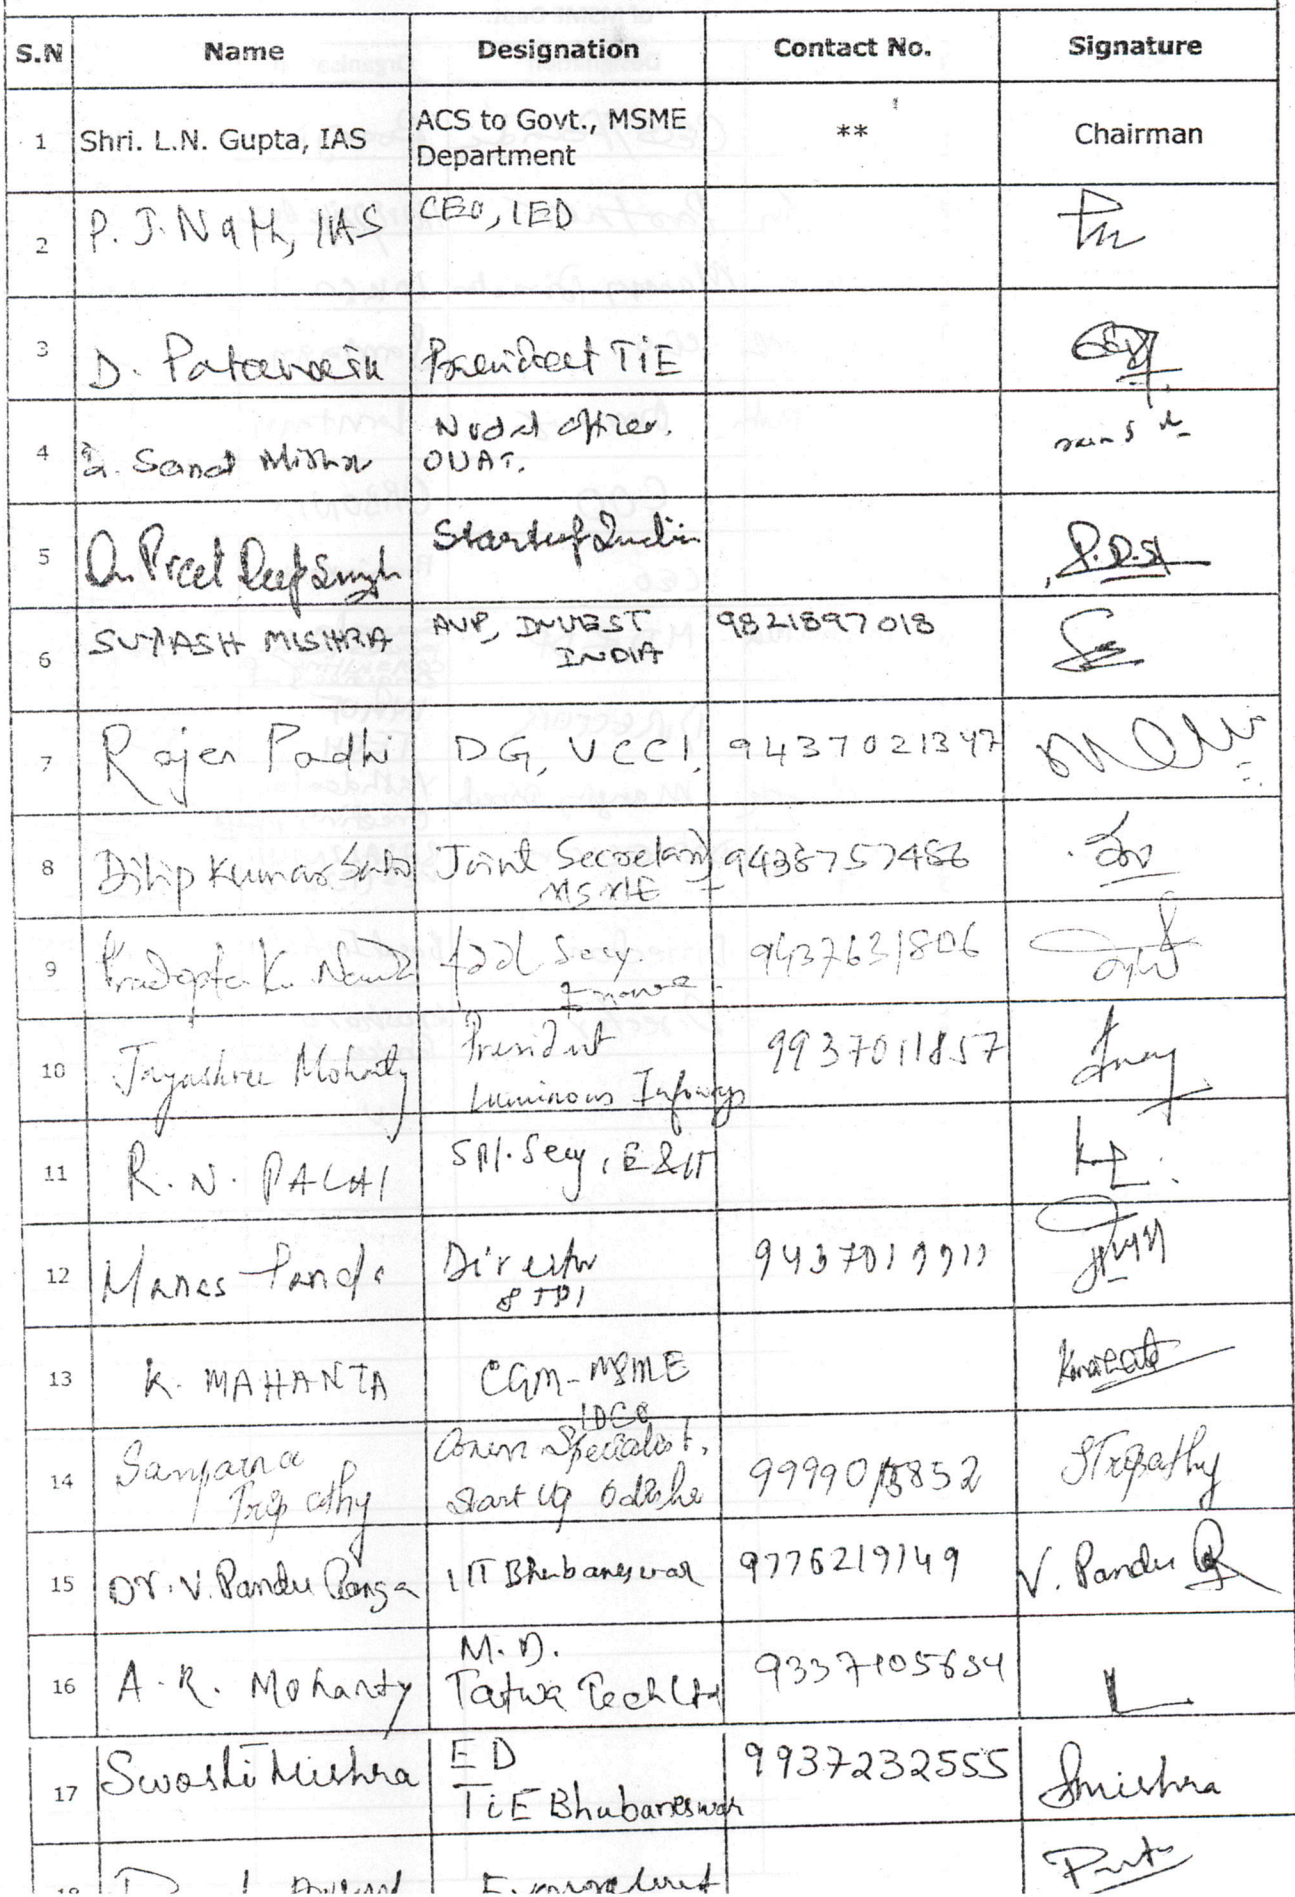 S.N Name Designation Contact No. Signature
1 Shri. L.N. Gupta, IAS ACS to Govt., MSME Department ** Chairman
2 P. J. Nath, IAS CEO, IED
3 D. Patanaik President TiE
4 Sanat Mishra Nodal officer. OUAT.
5 Dr. Preet Deep Singh Startup India P.D.S
6 SUYASH MISHRA AVP, INVEST INDIA 9821897018
7 Rajen Padhi DG, UCCI, 9437021347
8 Dilip Kumar Sahoo Joint Secretary MSME
9 Pradipta K. Nanda Addl Secy Finance 9437631806
10 Jayashree Mohanty President Luminous Infoways 9937011857
11 R. N. PALAI Spl. Secy, E & IT
12 Manas Panda Director STPI
13 K. MAHANTA CGM-MSME IDCO
14 Sanjarna Tripathy Specialist, Start up Odisha STripathy
15 Dr. V. Pandu Ranga IIT Bhubaneswar 9776219149 V. Pandu R
16 A. R. Mohanty M.D. Tatwa Tech Ltd
17 Swosti Mishra ED TiE Bhubaneswar 9937232555 Smishra
18